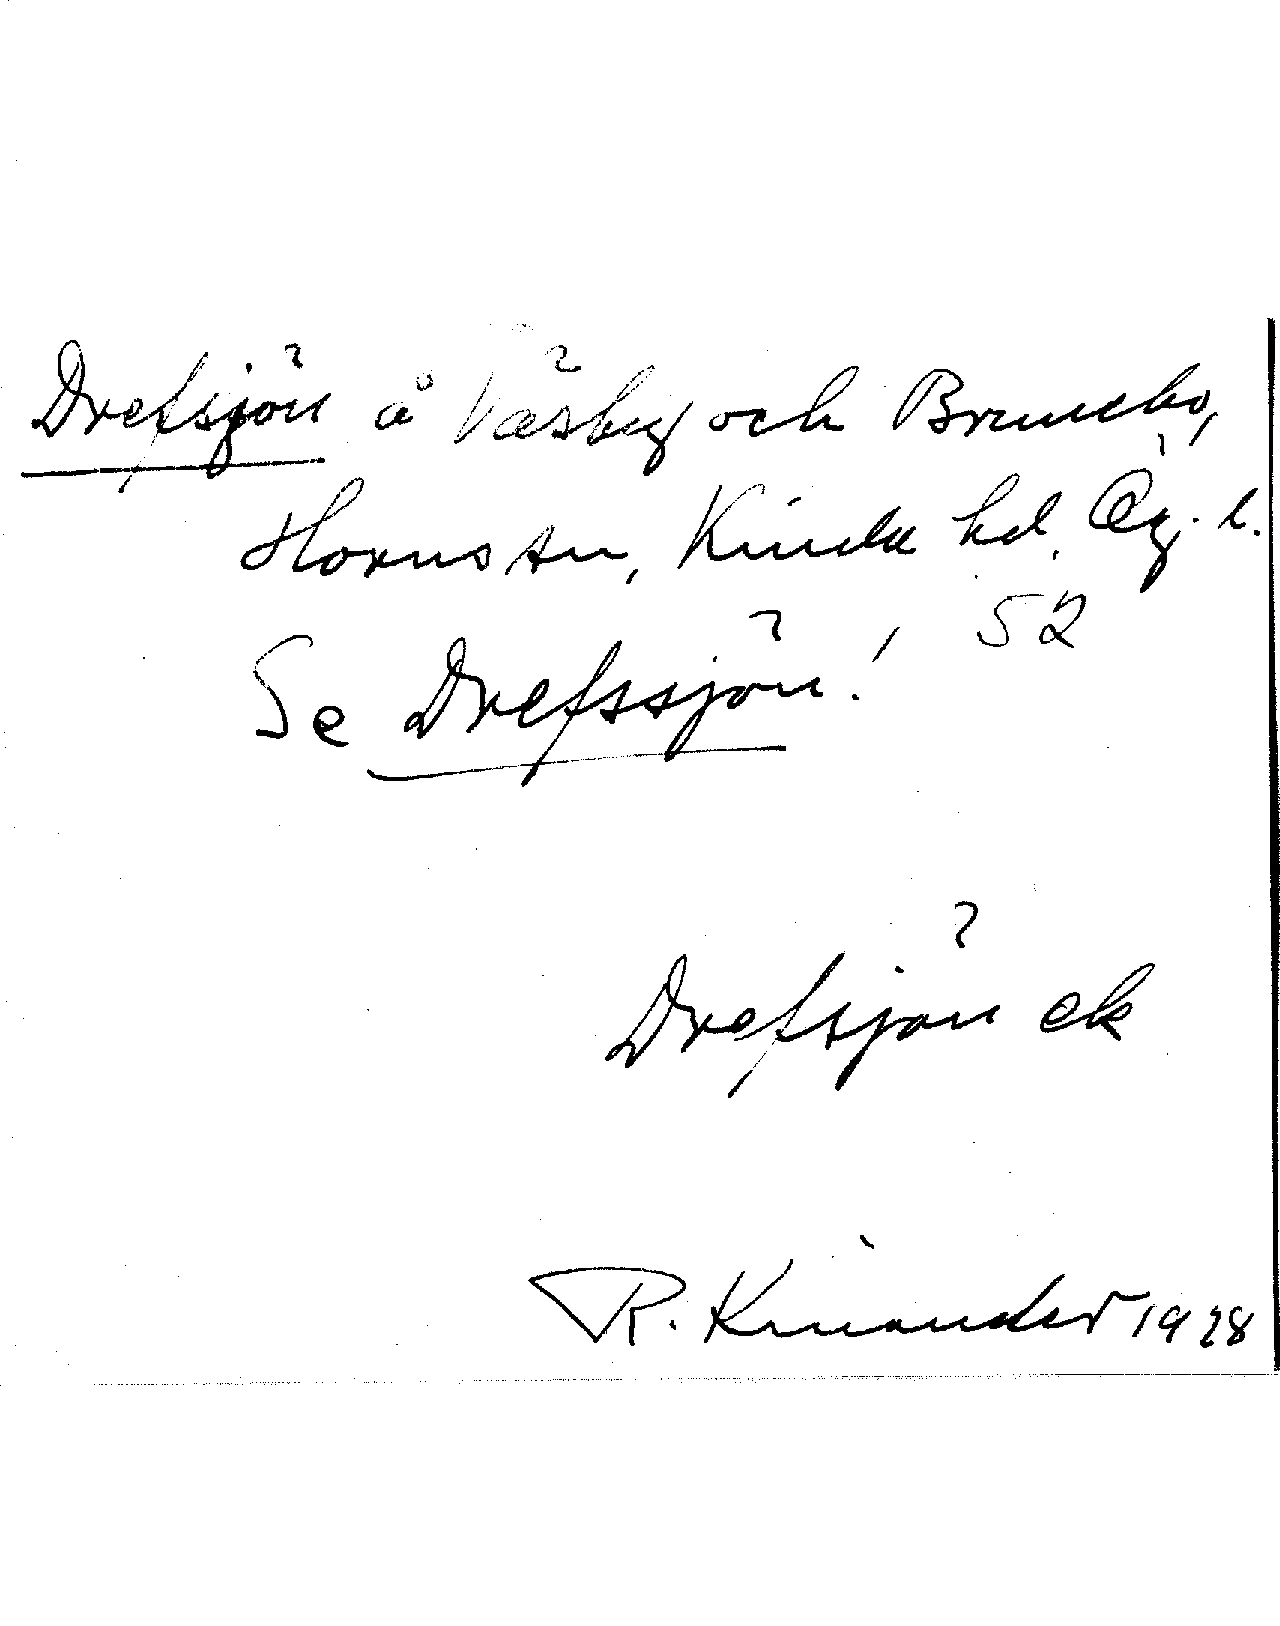 Drefsjön å Väsby och Brunebo,
Horns sn, Kinda hd, Ög. l.
Se Drefssjön! 52
Drefsjön ek
R. Kinander 1928